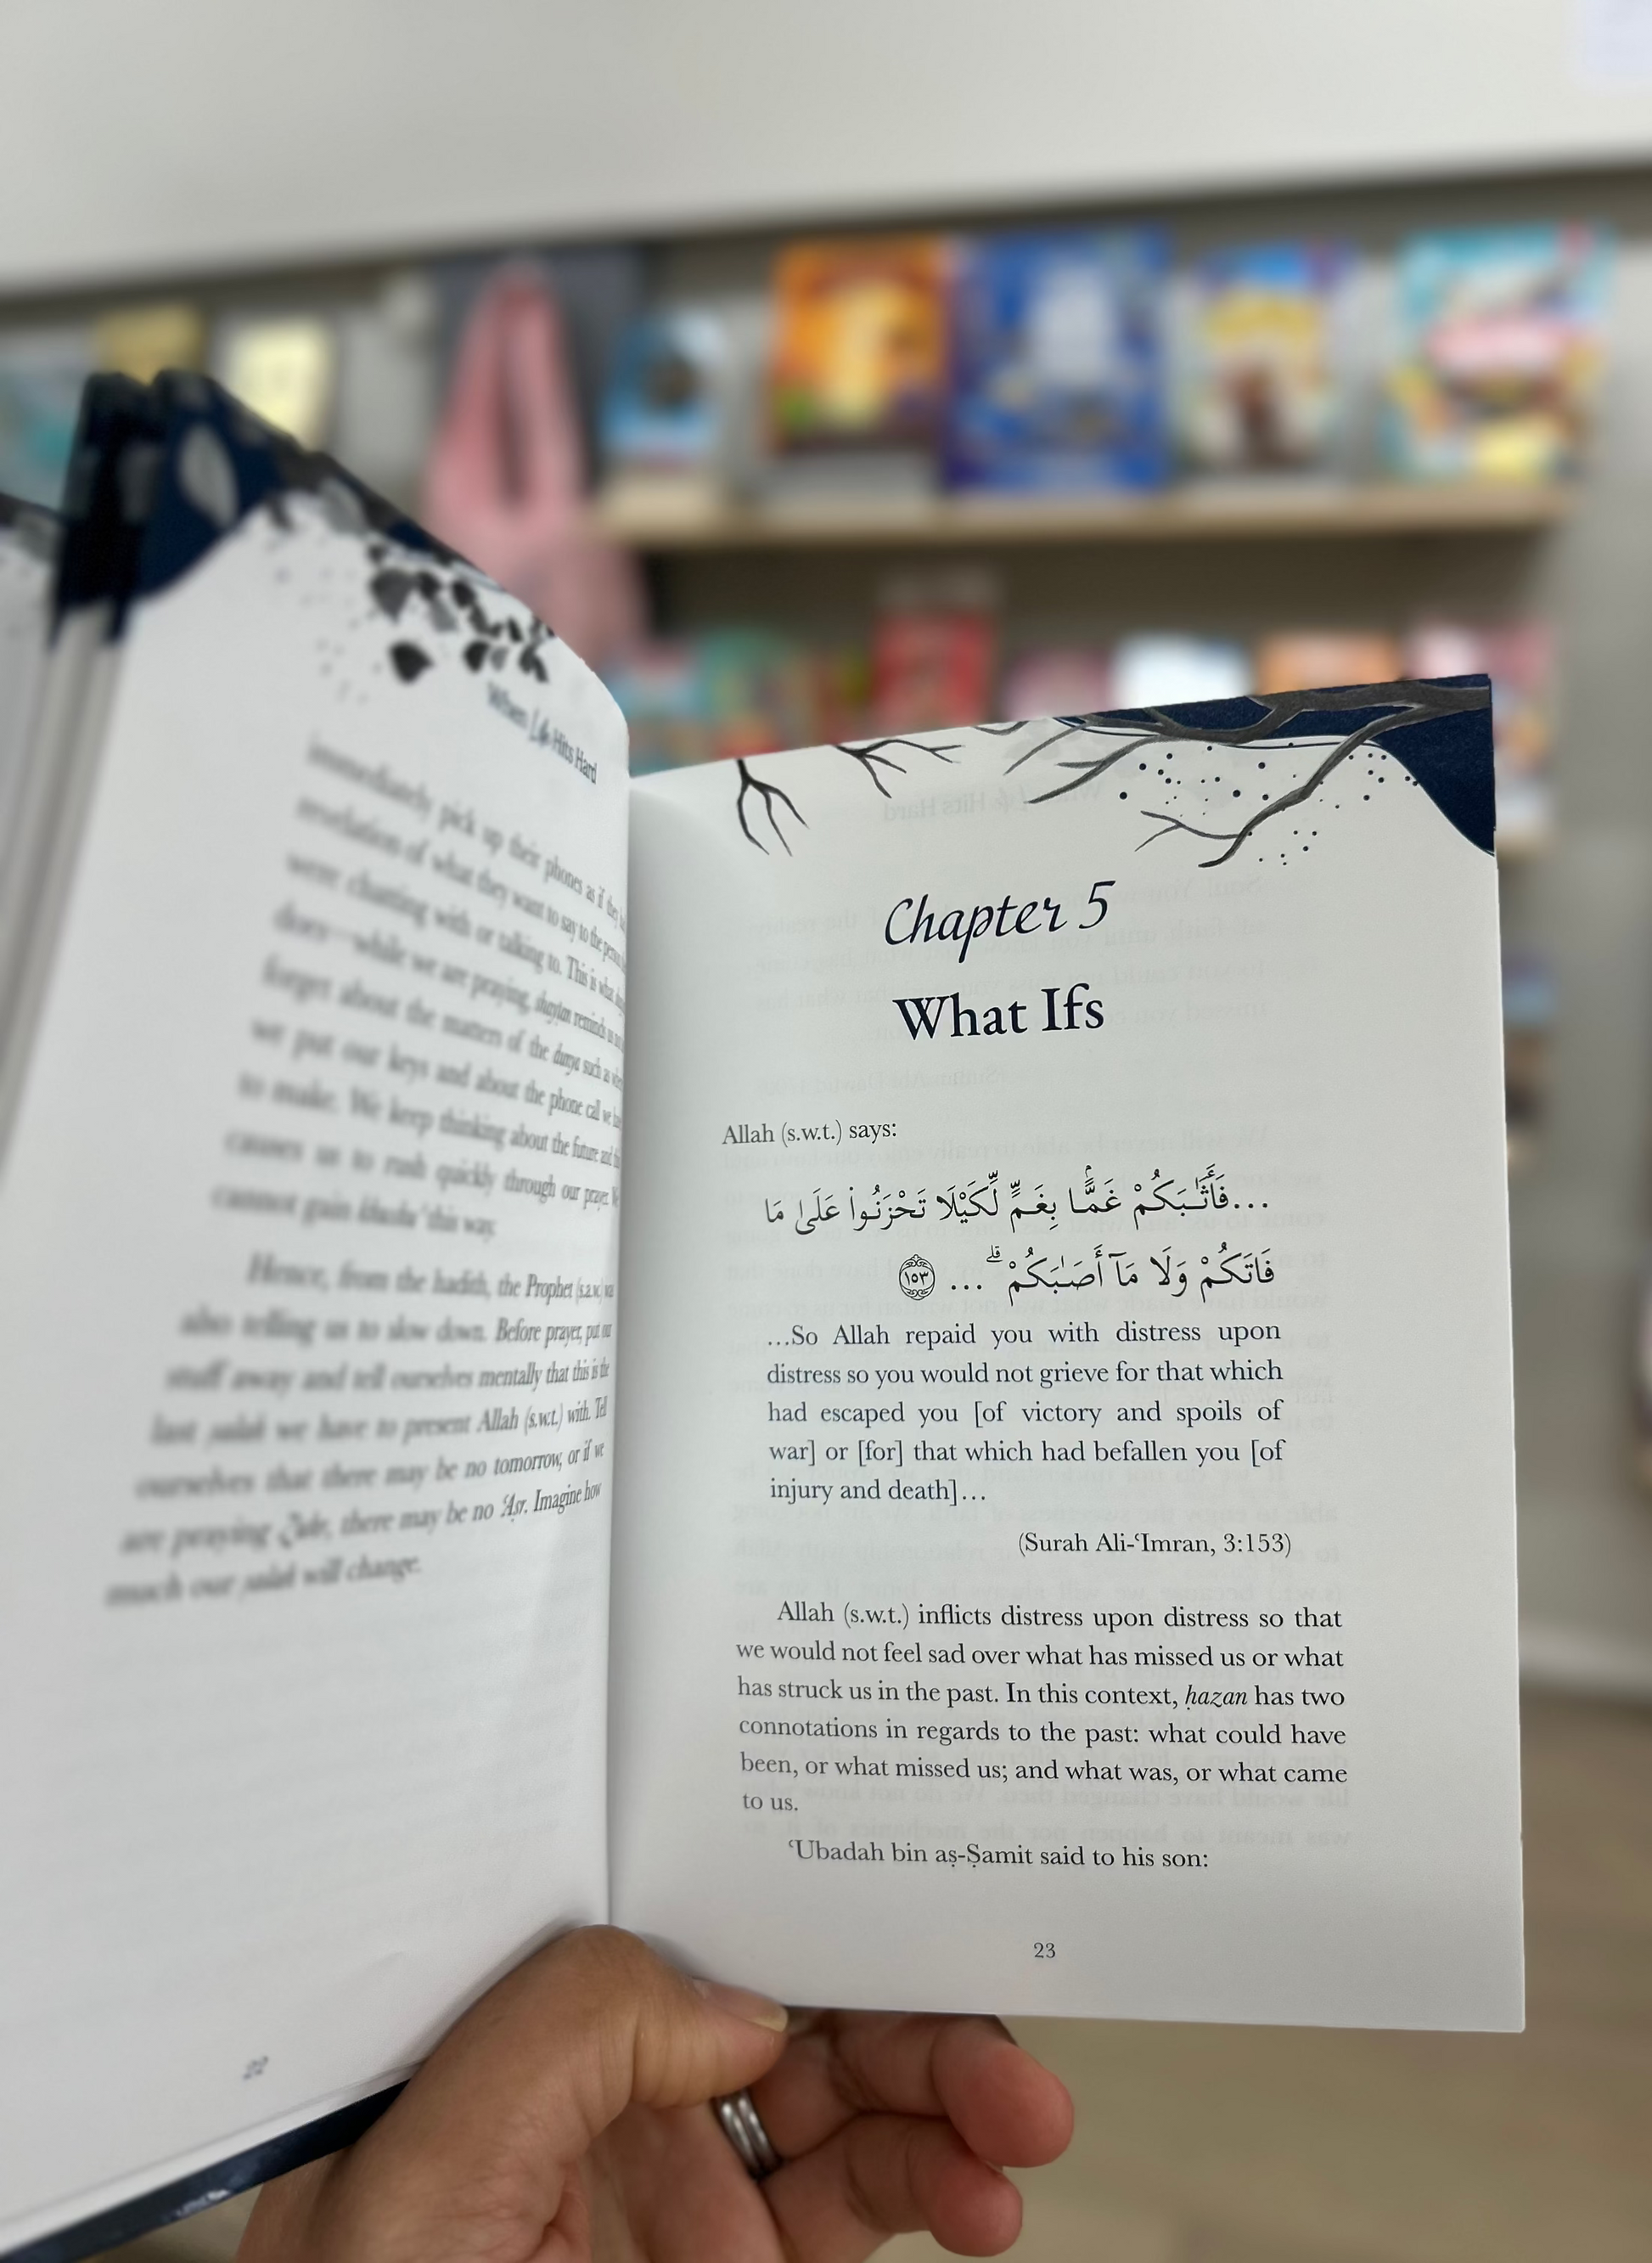 When Life Hits Hard
immediately pick up their phones as if they
revelation of what they want to say to the person
were chatting with or talking to. This is what
does—while we are praying, shaytan reminds us
forget about the matters of the dunya such as where
we put our keys and about the phone call we have
to make. We keep thinking about the future and this
causes us to rush quickly through our prayer. We
cannot gain khushu' this way.
Hence, from the hadith, the Prophet (s.a.w.) was
also telling us to slow down. Before prayer, put our
stuff away and tell ourselves mentally that this is the
last salah we have to present Allah (s.w.t.) with. Tell
ourselves that there may be no tomorrow, or if we
are praying Zuhr, there may be no ‘Aṣr. Imagine how
much our salah will change.
22
Chapter 5
What Ifs
Allah (s.w.t.) says:
...فَأَثَـٰبَكُمْ غَمًّۢا بِغَمٍّ لِّكَيْلَا تَحْزَنُوا۟ عَلَىٰ مَا
فَاتَكُمْ وَلَا مَآ أَصَـٰبَكُمْ ۗ ... ١٥٣
…So Allah repaid you with distress upon
distress so you would not grieve for that which
had escaped you [of victory and spoils of
war] or [for] that which had befallen you [of
injury and death]…
(Surah Ali-‘Imran, 3:153)
Allah (s.w.t.) inflicts distress upon distress so that
we would not feel sad over what has missed us or what
has struck us in the past. In this context, ḥazan has two
connotations in regards to the past: what could have
been, or what missed us; and what was, or what came
to us.
‘Ubadah bin aṣ-Ṣamit said to his son:
23